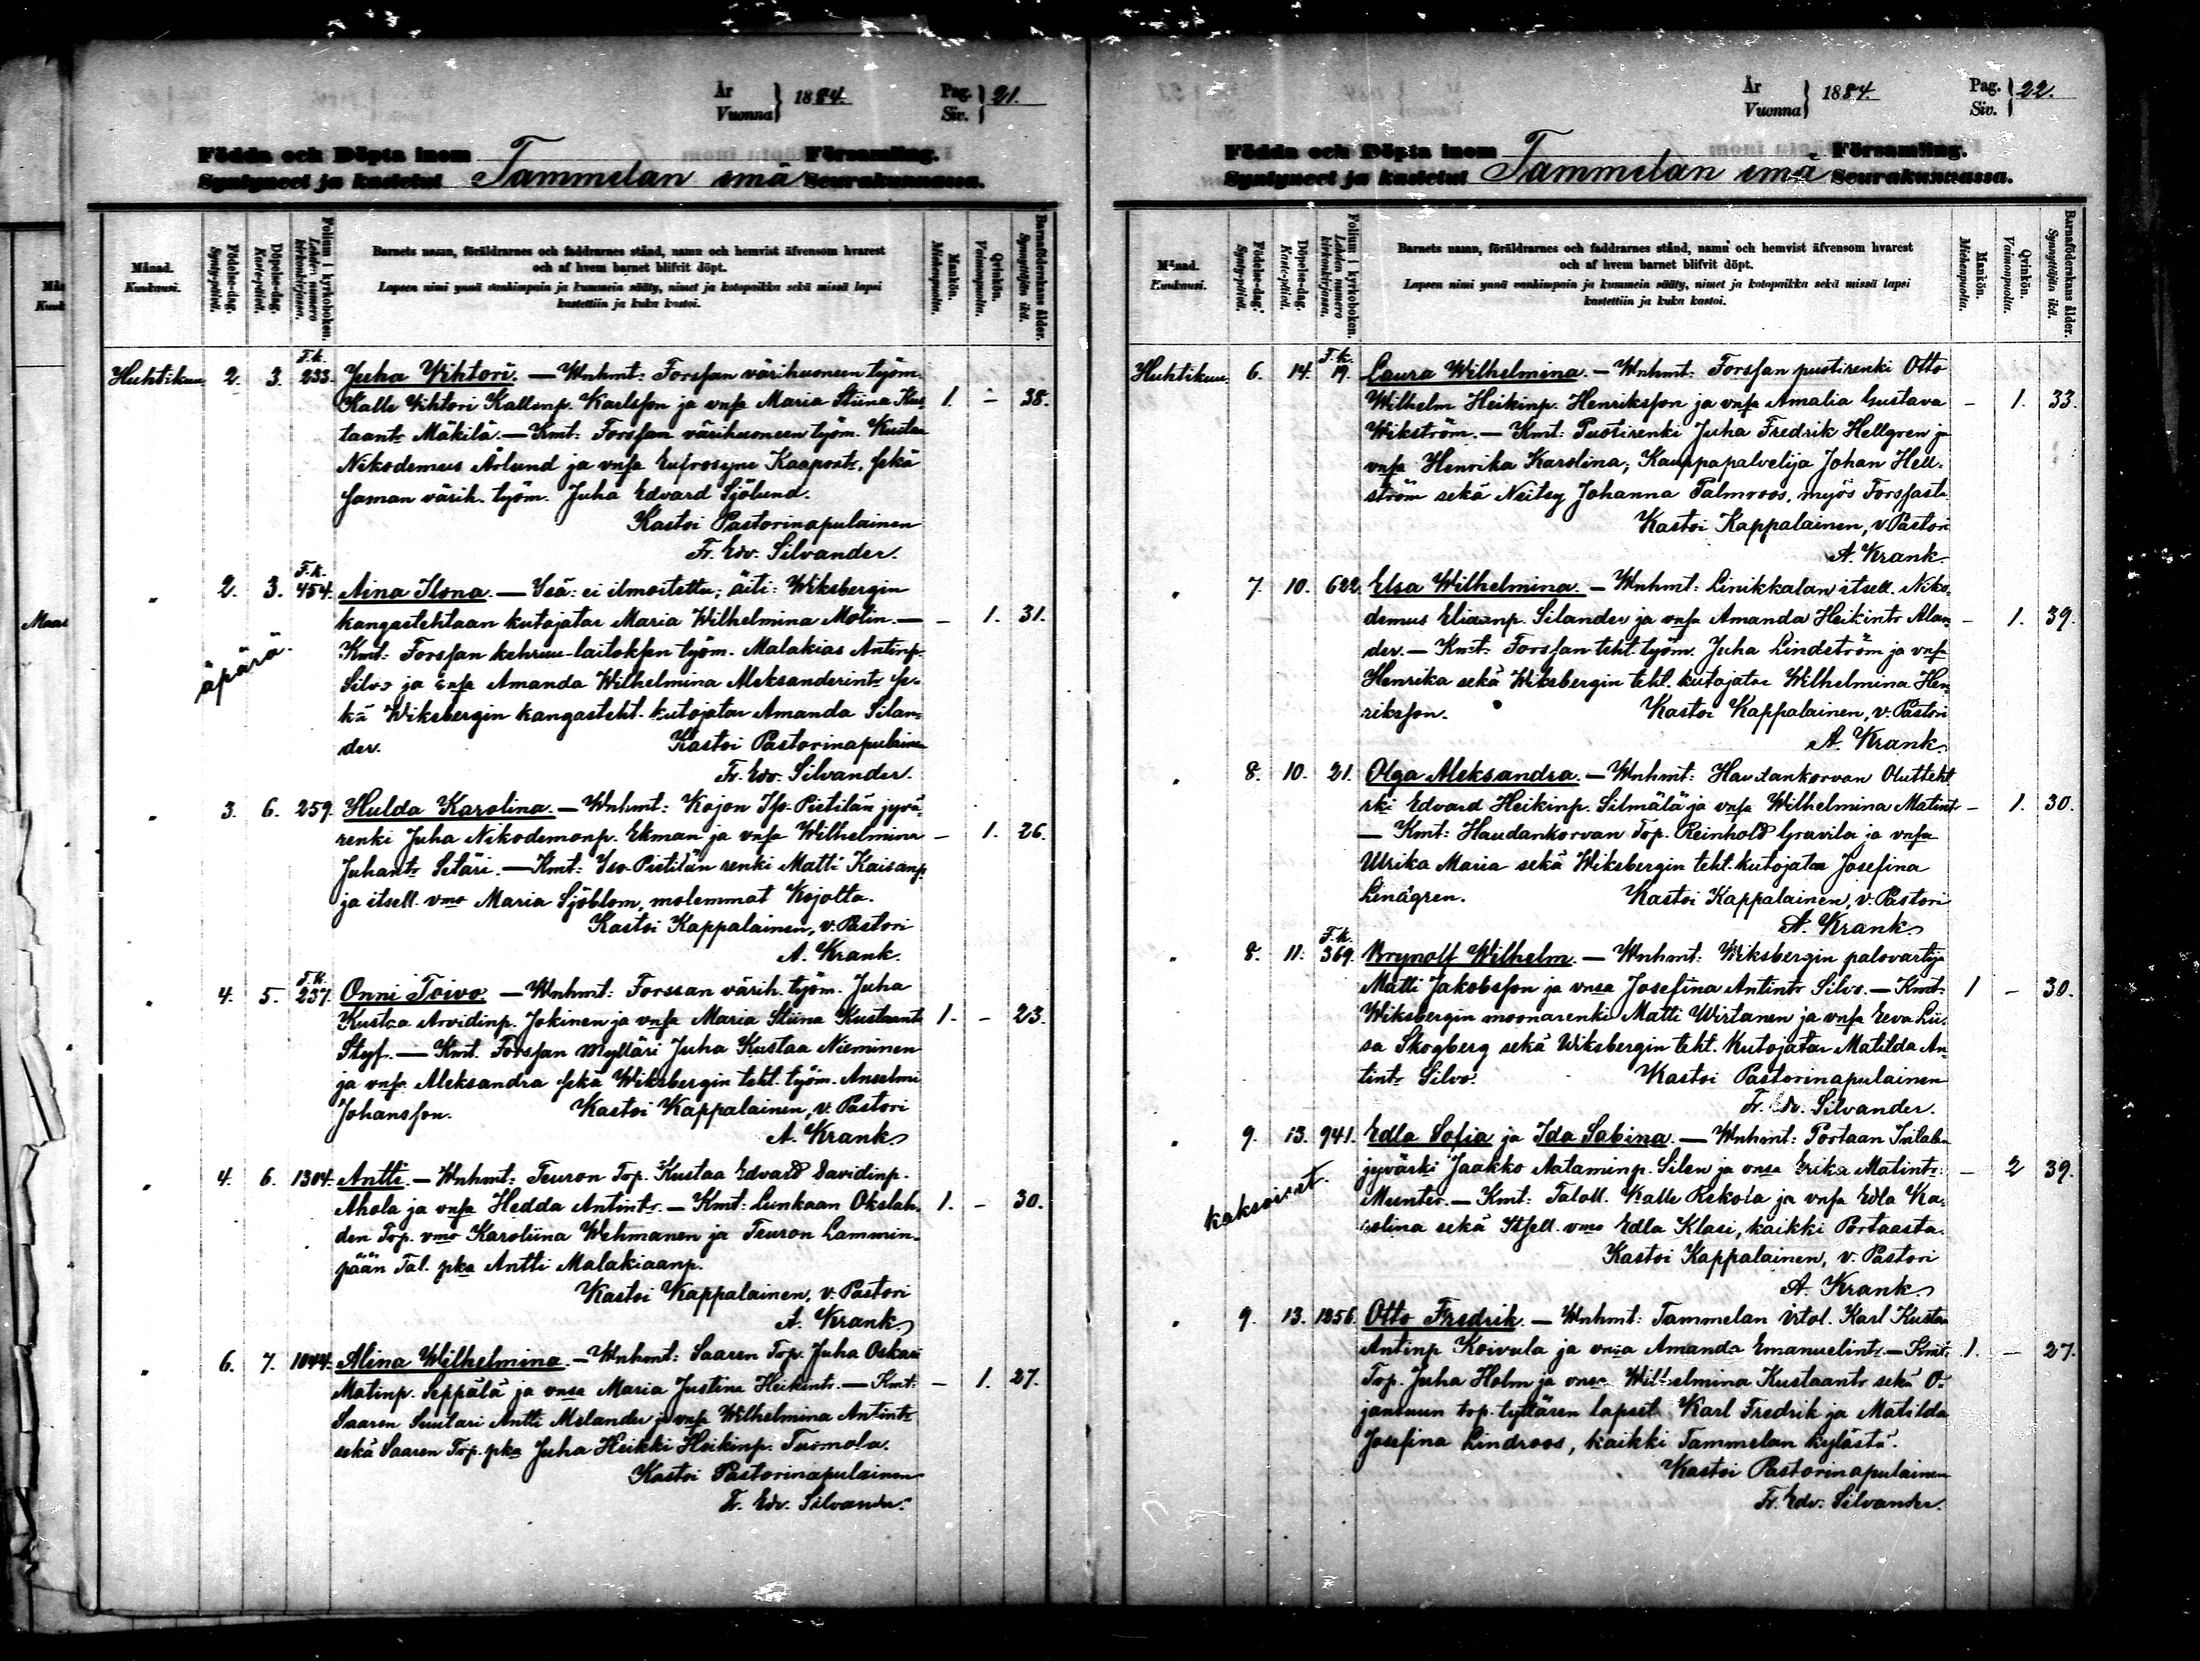 År
Vuonna } 1884. Pag.
Siv. } 21.
Födda och Döpta inom Församling.
Syntyneet ja kastetut Tammelan emä Seurakunnassa.
Månad.
Kuukausi.
Födelse-dag.
Synty-päivä.
Döpelse-dag.
Kaste-päivä.
Folium i kyrkoboken.
Lehden numero kirkonkirjassa.
Barnets namn, föräldrarnes och faddrarnes stånd, namn och hemvist äfvensom hvarest
och af hvem barnet blifvit döpt.
Lapsen nimi ynnä vanhimpain ja kummein sääty, nimet ja kotopaikka sekä missä lapsi
kastettiin ja kuka kastoi.
Mankön.
Miehenpuolta.
Qvinkön.
Vaimonpuolta.
Barnaföderskans ålder.
Synnyttäjän ikä.
Huhtikuu 2. 3. F.k. 233. Juha Wihtori. — Wnhmt: Forssan värihuoneen työm.
Kalle Wihtori Kallenp. Karlsson ja vnsa Maria Stiina Kus- 1. - 38.
taantr Mäkilä. — Kmt: Forssan värihuoneen työm. Kustaa
Nikodemus Ärlund ja vnsa Eufrosyne Kaapontr, sekä
saman värih. työm. Juha Edvard Sjölund.
Kastoi Pastorinapulainen
Fr. Edv. Silvander.
" 2. 3. F.k. 454. Aina Ilona. — Isä: ei ilmoitettu; äiti: Wiksbergin
kangastehtaan kutojatar Maria Wilhelmina Molin. — - 1. 31.
äpärä.
Kmt: Forssan kehruu-laitoksen työm. Malakias Antinp.
Silvo ja vnsa Amanda Wilhelmina Aleksanderintr se-
kä Wiksbergin kangasteht. kutojatar Amanda Silan-
der. Kastoi Pastorinapulainen
Fr. Edv. Silvander.
" 3. 6. 259. Hulda Karolina. — Wnhmt: Kojon Iso-Pietilän jyvä-
renki Juha Nikodemonp. Ekman ja vnsa Wilhelmina - 1. 26.
Juhantr Setäri. — Kmt: Iso-Pietilän renki Matti Kaisanp.
ja itsell. vmo Maria Sjöblom, molemmat Kojolta.
Kastoi Kappalainen, v. Pastori
A. Krank.
" 4. 5. F.k. 237. Onni Toivo. — Wnhmt: Forssan värih. työm. Juha
Kustaa Arvidinp. Jokinen ja vnsa Maria Stiina Kustaantr 1. - 23.
Styf. — Kmt. Forssan Mylläri Juha Kustaa Nieminen
ja vnsa Aleksandra sekä Wiksbergin teht. työm. Anselmi
Johansson. Kastoi Kappalainen, v. Pastori
A. Krank
" 4. 6. 1304. Antti. — Wnhmt: Teuron Top. Kustaa Edvard Davidinp.
Ahola ja vnsa Hedda Antintr. — Kmt: Lunkaan Okslah- 1. - 30.
den Top. vmo Karoliina Wehmanen ja Teuron Lammin-
pään Tal. pka Antti Malakiaanp.
Kastoi Kappalainen, v. Pastori
A. Krank
" 6. 7. 1044. Alina Wilhelmina. — Wnhmt: Saaren Top. Juha Oskari
Matinp. Seppälä ja vnsa Maria Justina Heikintr. — Kmt: - 1. 27.
Saaren Suutari Antti Melander ja vnsa Wilhelmina Antintr
sekä Saaren Top. pka Juha Heikki Heikinp. Tuomola.
Kastoi Pastorinapulainen
Fr. Edv. Silvander.
År
Vuonna } 1884. Pag.
Siv. } 22.
Födda och Döpta inom Församling.
Syntyneet ja kastetut Tammelan emä Seurakunnassa.
Månad.
Kuukausi.
Födelse-dag.
Synty-päivä.
Döpelse-dag.
Kaste-päivä.
Folium i kyrkoboken.
Lehden numero kirkonkirjassa.
Barnets namn, föräldrarnes och faddrarnes stånd, namn och hemvist äfvensom hvarest
och af hvem barnet blifvit döpt.
Lapsen nimi ynnä vanhimpain ja kummein sääty, nimet ja kotopaikka sekä missä lapsi
kastettiin ja kuka kastoi.
Mankön.
Miehenpuolta.
Qvinkön.
Vaimonpuolta.
Barnaföderskans ålder.
Synnyttäjän ikä.
Huhtikuu. 6. 14. F.k. 19. Laura Wilhelmina. — Wnhmt: Forssan puotirenki Otto
Wilhelm Heikinp. Henriksson ja vnsa Amalia Gustava - 1. 33.
Wikström. — Kmt: Puotirenki Juha Fredrik Hellgren ja
vnsa Henrika Karolina; Kauppapalvelija Johan Hell-
ström sekä Neitsy Johanna Palmroos, myös Forssasta.
Kastoi Kappalainen, v. Pastori
A. Krank.
" 7. 10. 622. Elsa Wilhelmina. — Wnhmt: Linikkalan itsell. Niko-
demus Eliaanp. Silander ja vnsa Amanda Heikintr Alan- - 1. 39.
der. — Kmt: Forssan teht. työm. Juha Lindström ja vnsa
Henrika sekä Wiksbergin teht. kutojatar Wilhelmina Hen-
riksson. Kastoi Kappalainen, v. Pastori
A. Krank.
" 8. 10. 21. Olga Aleksandra. — Wnhmt: Haudankorvan Olutteht.
rki Edvard Heikinp. Silmälä ja vnsa Wilhelmina Matintr - 1. 30.
— Kmt: Haudankorvan Top. Reinhold Gravila ja vnsa
Ulrika Maria sekä Wiksbergin teht. kutojatar Josefina
Lindgren. Kastoi Kappalainen, v. Pastori
A. Krank.
" 8. 11. F.k. 369. Brynolf Wilhelm. — Wnhmt: Wiksbergin palovartija
Matti Jakobsson ja vnsa Josefina Antintr Silvo. — Kmt: 1 - 30.
Wiksbergin moonarenki Matti Wirtanen ja vnsa Eeva Lii-
sa Skogberg sekä Wiksbergin teht. Kutojatar Matilda An-
tintr Silvo. Kastoi Pastorinapulainen
Fr. Edv. Silvander.
" 9. 13. 941. Edla Sofia ja Ida Sabina. — Wnhmt: Portaan
jyvärki Jaakko Aataminp. Silen ja vnsa Erika Matintr - 2 39.
kaksoiset.
Munter. — Kmt: Taloll. Kalle Rekola ja vnsa Edla Ka-
rolina sekä Itsell. vmo Edla Klasi, kaikki Portaasta.
Kastoi Kappalainen, v. Pastori
A. Krank.
" 9. 13. 1356. Otto Fredrik. — Wnhmt: Tammelan irtol. Karl Kustaa
Antinp Koivula ja vnsa Amanda Emanuelintr. — Kmt: 1. - 27.
Top. Juha Holm ja vnsa Wilhelmina Kustaantr sekä O-
jansuun top. tyttären lapset Karl Fredrik ja Matilda
Josefina Lindroos, kaikki Tammelan kylästä.
Kastoi Pastorinapulainen
Fr. Edv. Silvander.